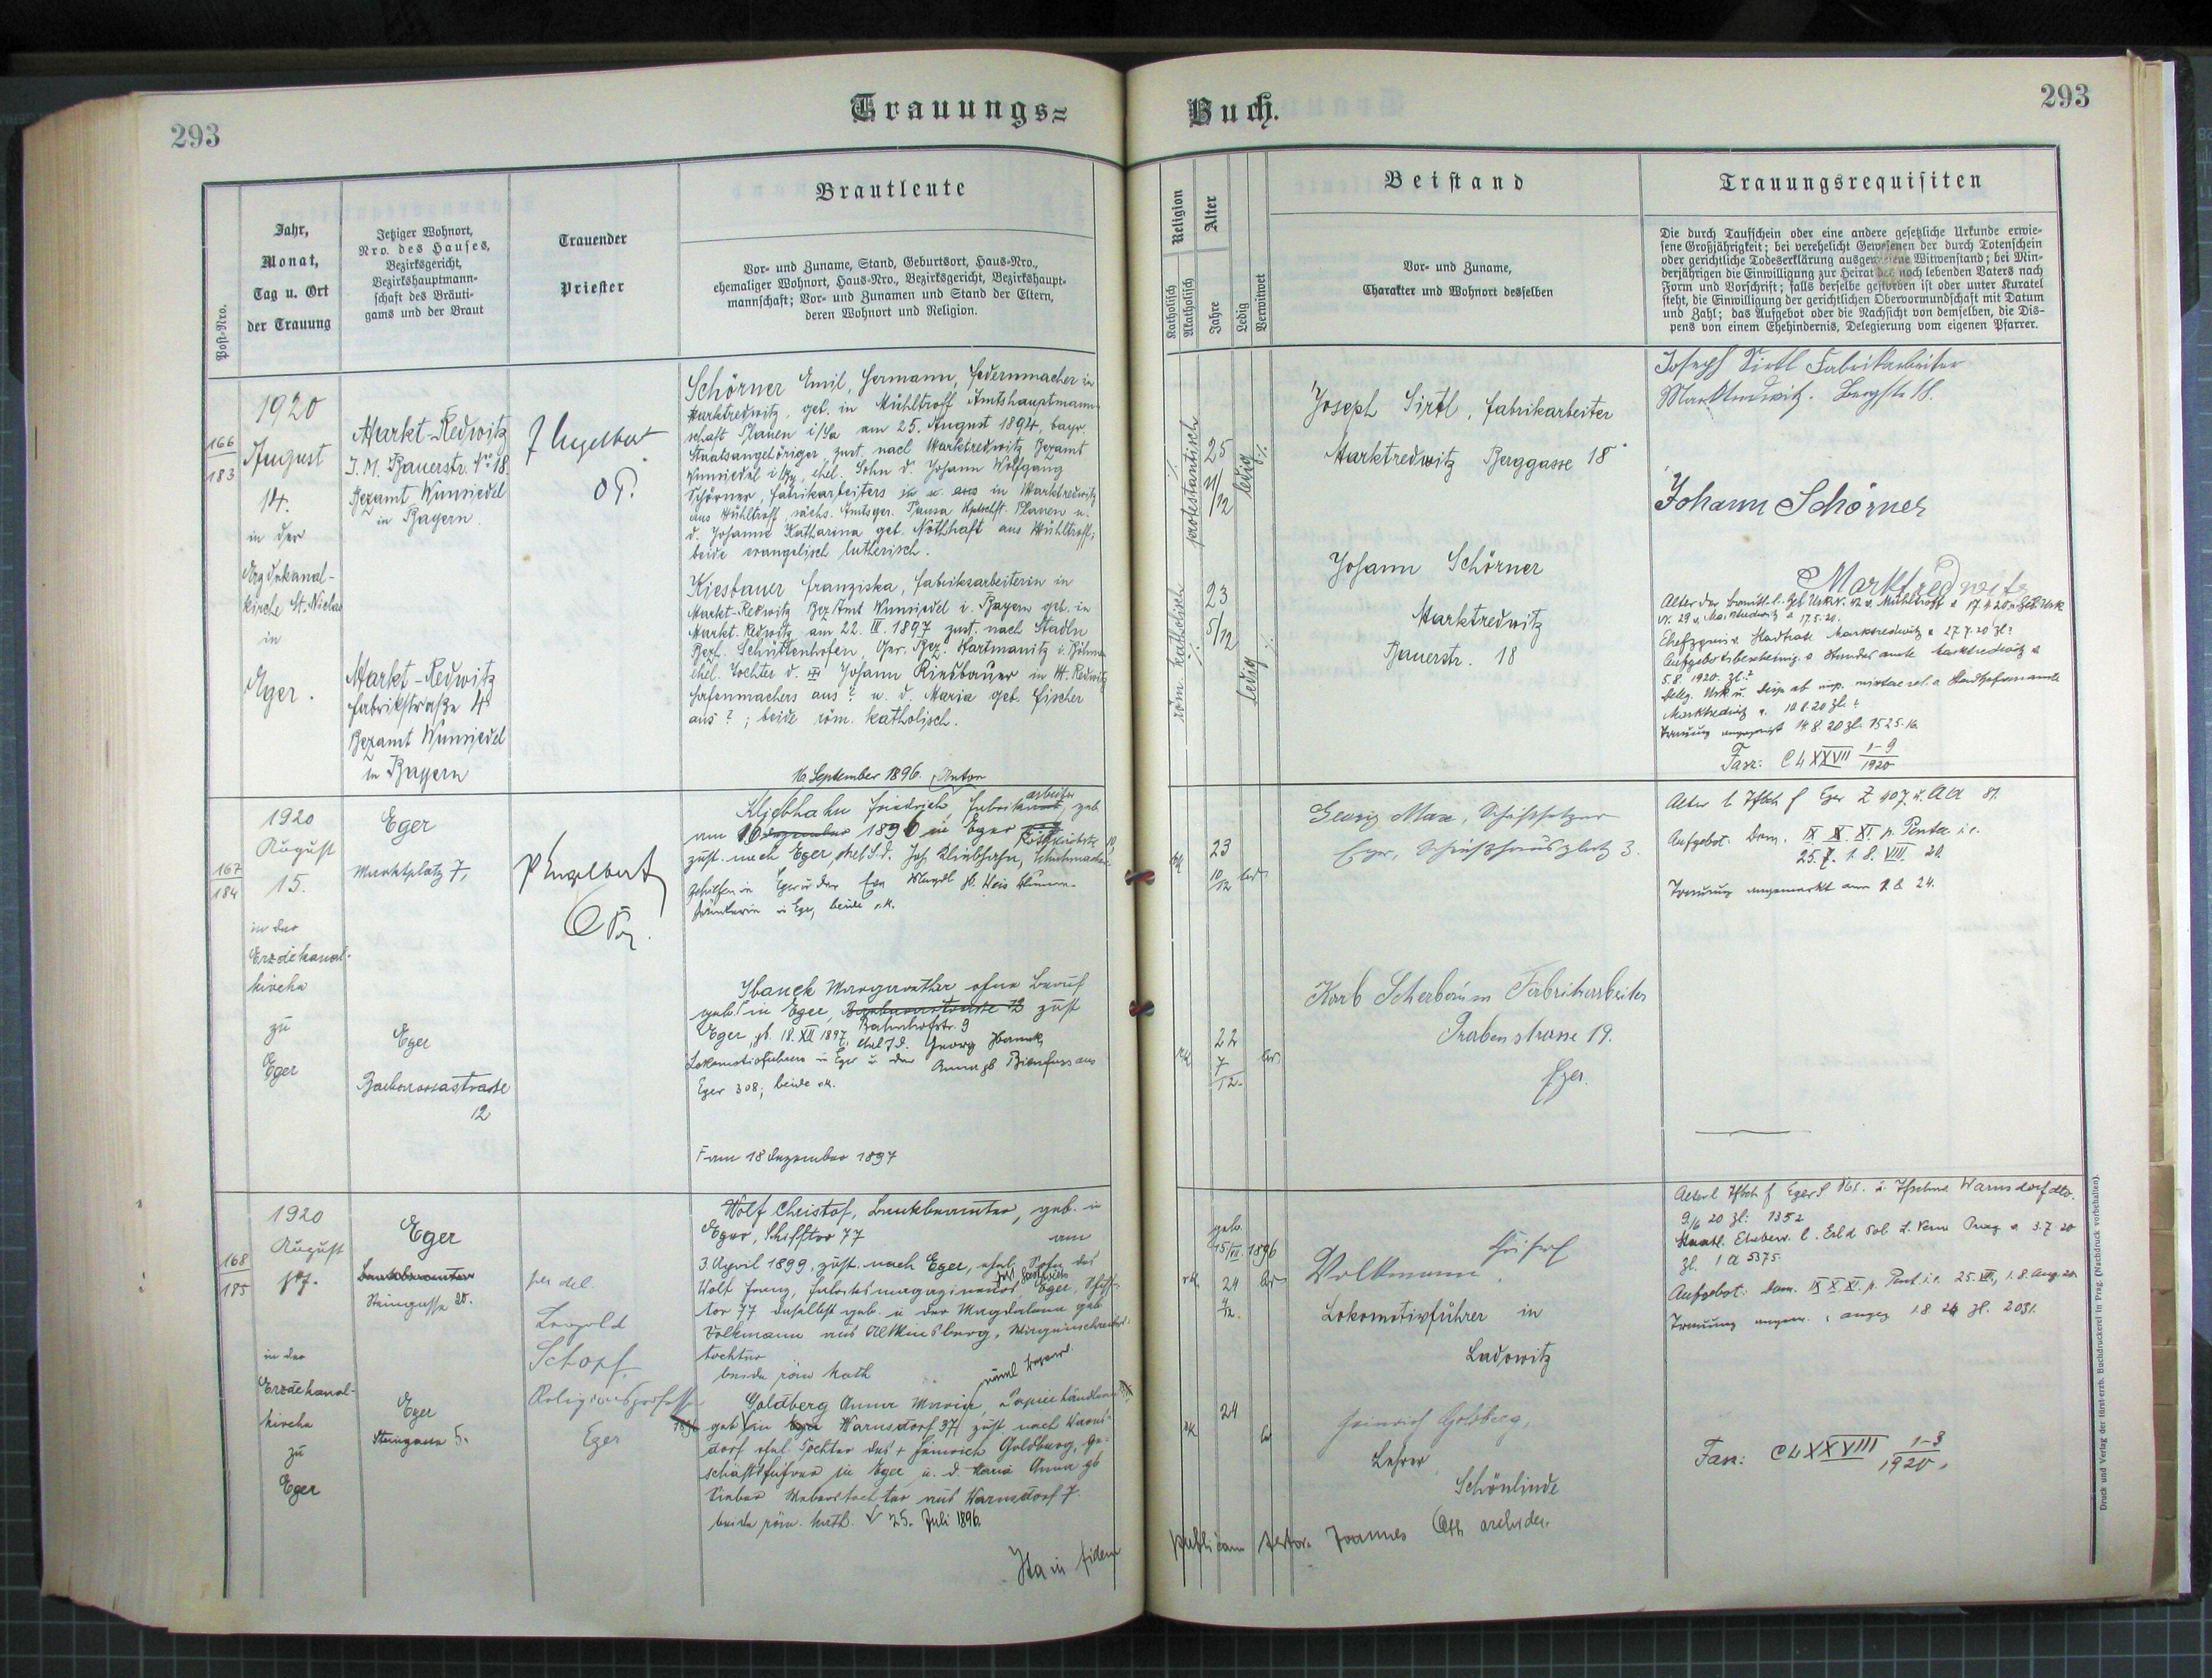 293
Trauungs=
Buch.
293
Post-Nro.
Jahr,
Monat,
Tag u. Ort
der Trauung
Jetziger Wohnort,
Nro. des Hauses,
Bezirksgericht,
Bezirkshauptmann-
schaft des Bräuti-
gams und der Braut
Trauender
Priester
Brautleute
Vor- und Zuname, Stand, Geburtsort, Haus-Nro.,
ehemaliger Wohnort, Haus-Nro., Bezirksgericht, Bezirkshaupt-
mannschaft; Vor- und Zunamen und Stand der Eltern,
deren Wohnort und Religion.
Religion
Katholisch
Akatholisch
Alter
Jahre
Ledig
Verwitwet
Beistand
Vor- und Zuname,
Charakter und Wohnort desselben
Trauungsrequisiten
Die durch Taufschein oder eine andere gesetzliche Urkunde erwie-
sene Großjährigkeit; bei verehelicht Gewesenen der durch Totenschein
oder gerichtliche Todeserklärung ausgewiesene Witwenstand; bei Min-
derjährigen die Einwilligung zur Heirat des noch lebenden Vaters nach
Form und Vorschrift; falls derselbe gestorben ist oder unter Kuratel
steht, die Einwilligung der gerichtlichen Obervormundschaft mit Datum
und Zahl; das Aufgebot oder die Nachsicht von demselben, die Dis-
pens von einem Ehehindernis, Delegierung vom eigenen Pfarrer.
166
183
1920
August
14.
in der
Erzdekanal-
kirche St. Niclas
in
Eger.
Markt-Redwitz
J. M. Bauerstr. No 18
Bezamt Wunsiedel
in Bayern.
Markt-Redwitz
Fabrikstraße 4
Bezamt Wunsiedel
in Bayern
P Engelbert
Schörner Emil, Hermann, Federnmacher in
Marktredwitz, geb. in Mühltroff Amtshauptmann-
schaft Plauen i/Sa am 25. August 1894, bayr.
Staatsangehöriger, zust. nach Marktredwitz Bezamt
Wunsiedel i/By, ehel. Sohn d. Johann Wolfgang
Schörner, Fabrikarbeiters in u. aus in Marktredwitz
aus Mühltroff, sächs. Amtsger. Pausa Plauen u.
d. Johanne Katharina geb. Nothhaft aus Mühltroff;
beide evangelisch lutherisch.
Kiesbauer Franziska, Fabriksarbeiterin in
Markt-Redwitz Bez Amt Wunsiedel i. Bayern geb. in
Markt-Redwitz am 22. III. 1897 zust. nach Stadln
Bezh. Schüttenhofen, Ger. Bez. Hartmanitz i. Böhmen
ehel. Tochter d. Johann Kiesbauer in M. Redwitz
Hafenmachers aus ? u. d. Maria geb. Fischer
aus ? ; beide röm. katholisch.
protestantisch
25
11/12
ledig
röm. katholisch
23
5/12
ledig
Joseph Sirtl, Fabrikarbeiter
Marktredwitz Berggasse 18
Johann Schörner
Marktredwitz
Bauerstr. 18
Joseph Sirtl Fabrikarbeiter
Marktredwitz. Bergstr 18.
Johann Schörner
Marktredwitz
Aufgebotsbescheinig. Standesamte Marktredwitz
5. 8. 1920. Zl.?
Trauung angezeigt 14. 8. 20 Zl. 1525.
Fasz: C4 XXVII 1-9
1920
167
184
1920
August
15.
in der
Erzdekanal-
kirche
zu
Eger
Eger
Marktplatz 7,
Eger
Barbarossastrasse
12
P Engelbert
16. September 1896. Anton
Kliebhahn Friedrich Fabriks arbeiter, geb.
am 16 Dezember 1896 in Eger
zust. nach Eger, ehel. S. d. Joh Kliebhahn, Schuhmacher
gehilfen in Eger u. der Eva Magdl
in Eger, beide r. k.
Ibanek Margarethe ohne Beruf
geb. Γ in Eger, Barbarossastrasse 12 zust
Bahnhofstr. 9
Eger, gb. 18. XII 1897, ehel T d. Georg Ibanek,
Lokomotivführers in Eger u. der Anna gb Bienfuss aus
Eger 308; beide r.k.
Γ am 18 Dezember 1897
rk
23
10/12
led.
rk
22
7
12.
led.
Georg Max, Schriftsetzer
Eger, Schießhausplatz 3.
Karl Scherbaum Fabriksarbeiter
Grabenstrasse 19.
Eger.
Aufgebot: Dom. IX X XI. p. Pentec i. e.
25. 7. 1. 8. VIII. 20.
Trauung angemerkt am
168
185
1920
August
in der
Erzdekanal-
kirche
zu
Eger
Eger
Bankbeamter
Steingasse 20.
Eger
Steingasse 5.
per del.
Leopold
Schopf
Religionsprofessor
Eger
Wolf Christof, Bankbeamter, geb. in
Eger, Schifftor 77
am
3. April 1899, zust. nach Eger, ehel. Sohn des
Wolf Franz, Fabriksmagazineurs, Eger, Schiff-
tor 77 daselbst geb. u der Magdalena geb
Volkmann aus Altkinsberg,
tochter
beide röm kath
Goldberg Anna Maria, Papierhändlerin
geb. √ in Eger Warnsdorf 37 zust. nach Warns-
dorf ehel Tochter des † Heinrich Goldberg, Ge-
schäftsführer in Eger u. d. Maria Anna gb
Weberstochter aus Warnsdorf 7.
beide röm. kath. √ 25. Juli 1896.
geb.
1896
rk.
24
led
rk.
24
led
Volkmann, Christof
Lokomotivführer in
Ladowitz
Heinrich Goldberg,
Lehrer
Schönlinde
9/6 20 Zl: 1352
Zl. 1 a 5375.
Aufgebot: Dom. IX X XI. p. Pent. i. e. 25. VII, 1. 8. Aug. 20
Fasz: C4 XXVIII 1-3
1920.
Ita in fidem
publicam testor Joannes archidec.
Druck und Verlag der fürsterzb. Buchdruckerei in Prag. (Nachdruck vorbehalten).